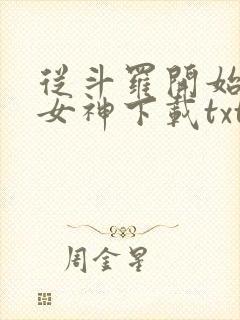 從斗羅開始
女神下載txt
周金星